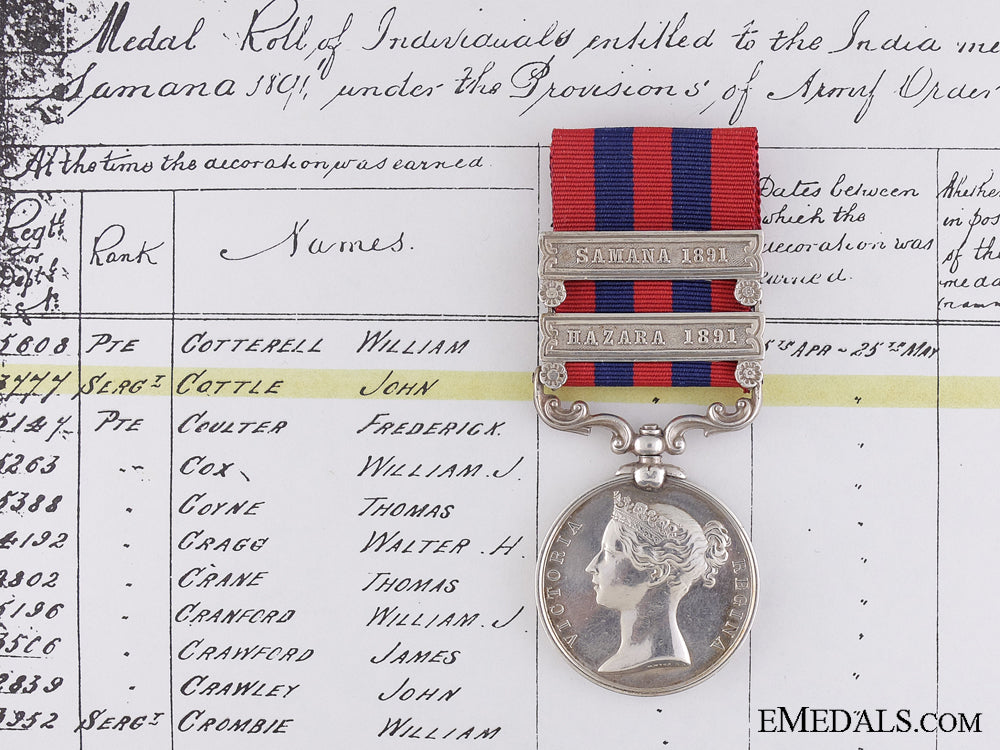 Medal Roll of Individuals entitled to the India me
Samana 1891," under the Provisions of Army Order
At the time the decoration was earned.
Regtl
or
Deptl
No
Rank
Names.
Dates between
which the
decoration was
earned.
Whether
in pos
of the
meda
(nam
SAMANA 1891
HAZARA 1891
5608 PTE COTTERELL WILLIAM 5TH APR ~ 25TH MAY
3777 SERGT COTTLE JOHN " "
5147 PTE COULTER FREDERICK "
5263 " COX WILLIAM. J. "
5388 " COYNE THOMAS "
4192 " CRAGG WALTER . H. "
2802 " CRANE THOMAS "
5196 " CRANFORD WILLIAM . J. "
3506 " CRAWFORD JAMES "
2839 " CRAWLEY JOHN "
3952 SERGT CROMBIE WILLIAM
VICTORIA REGINA
EMEDALS.COM